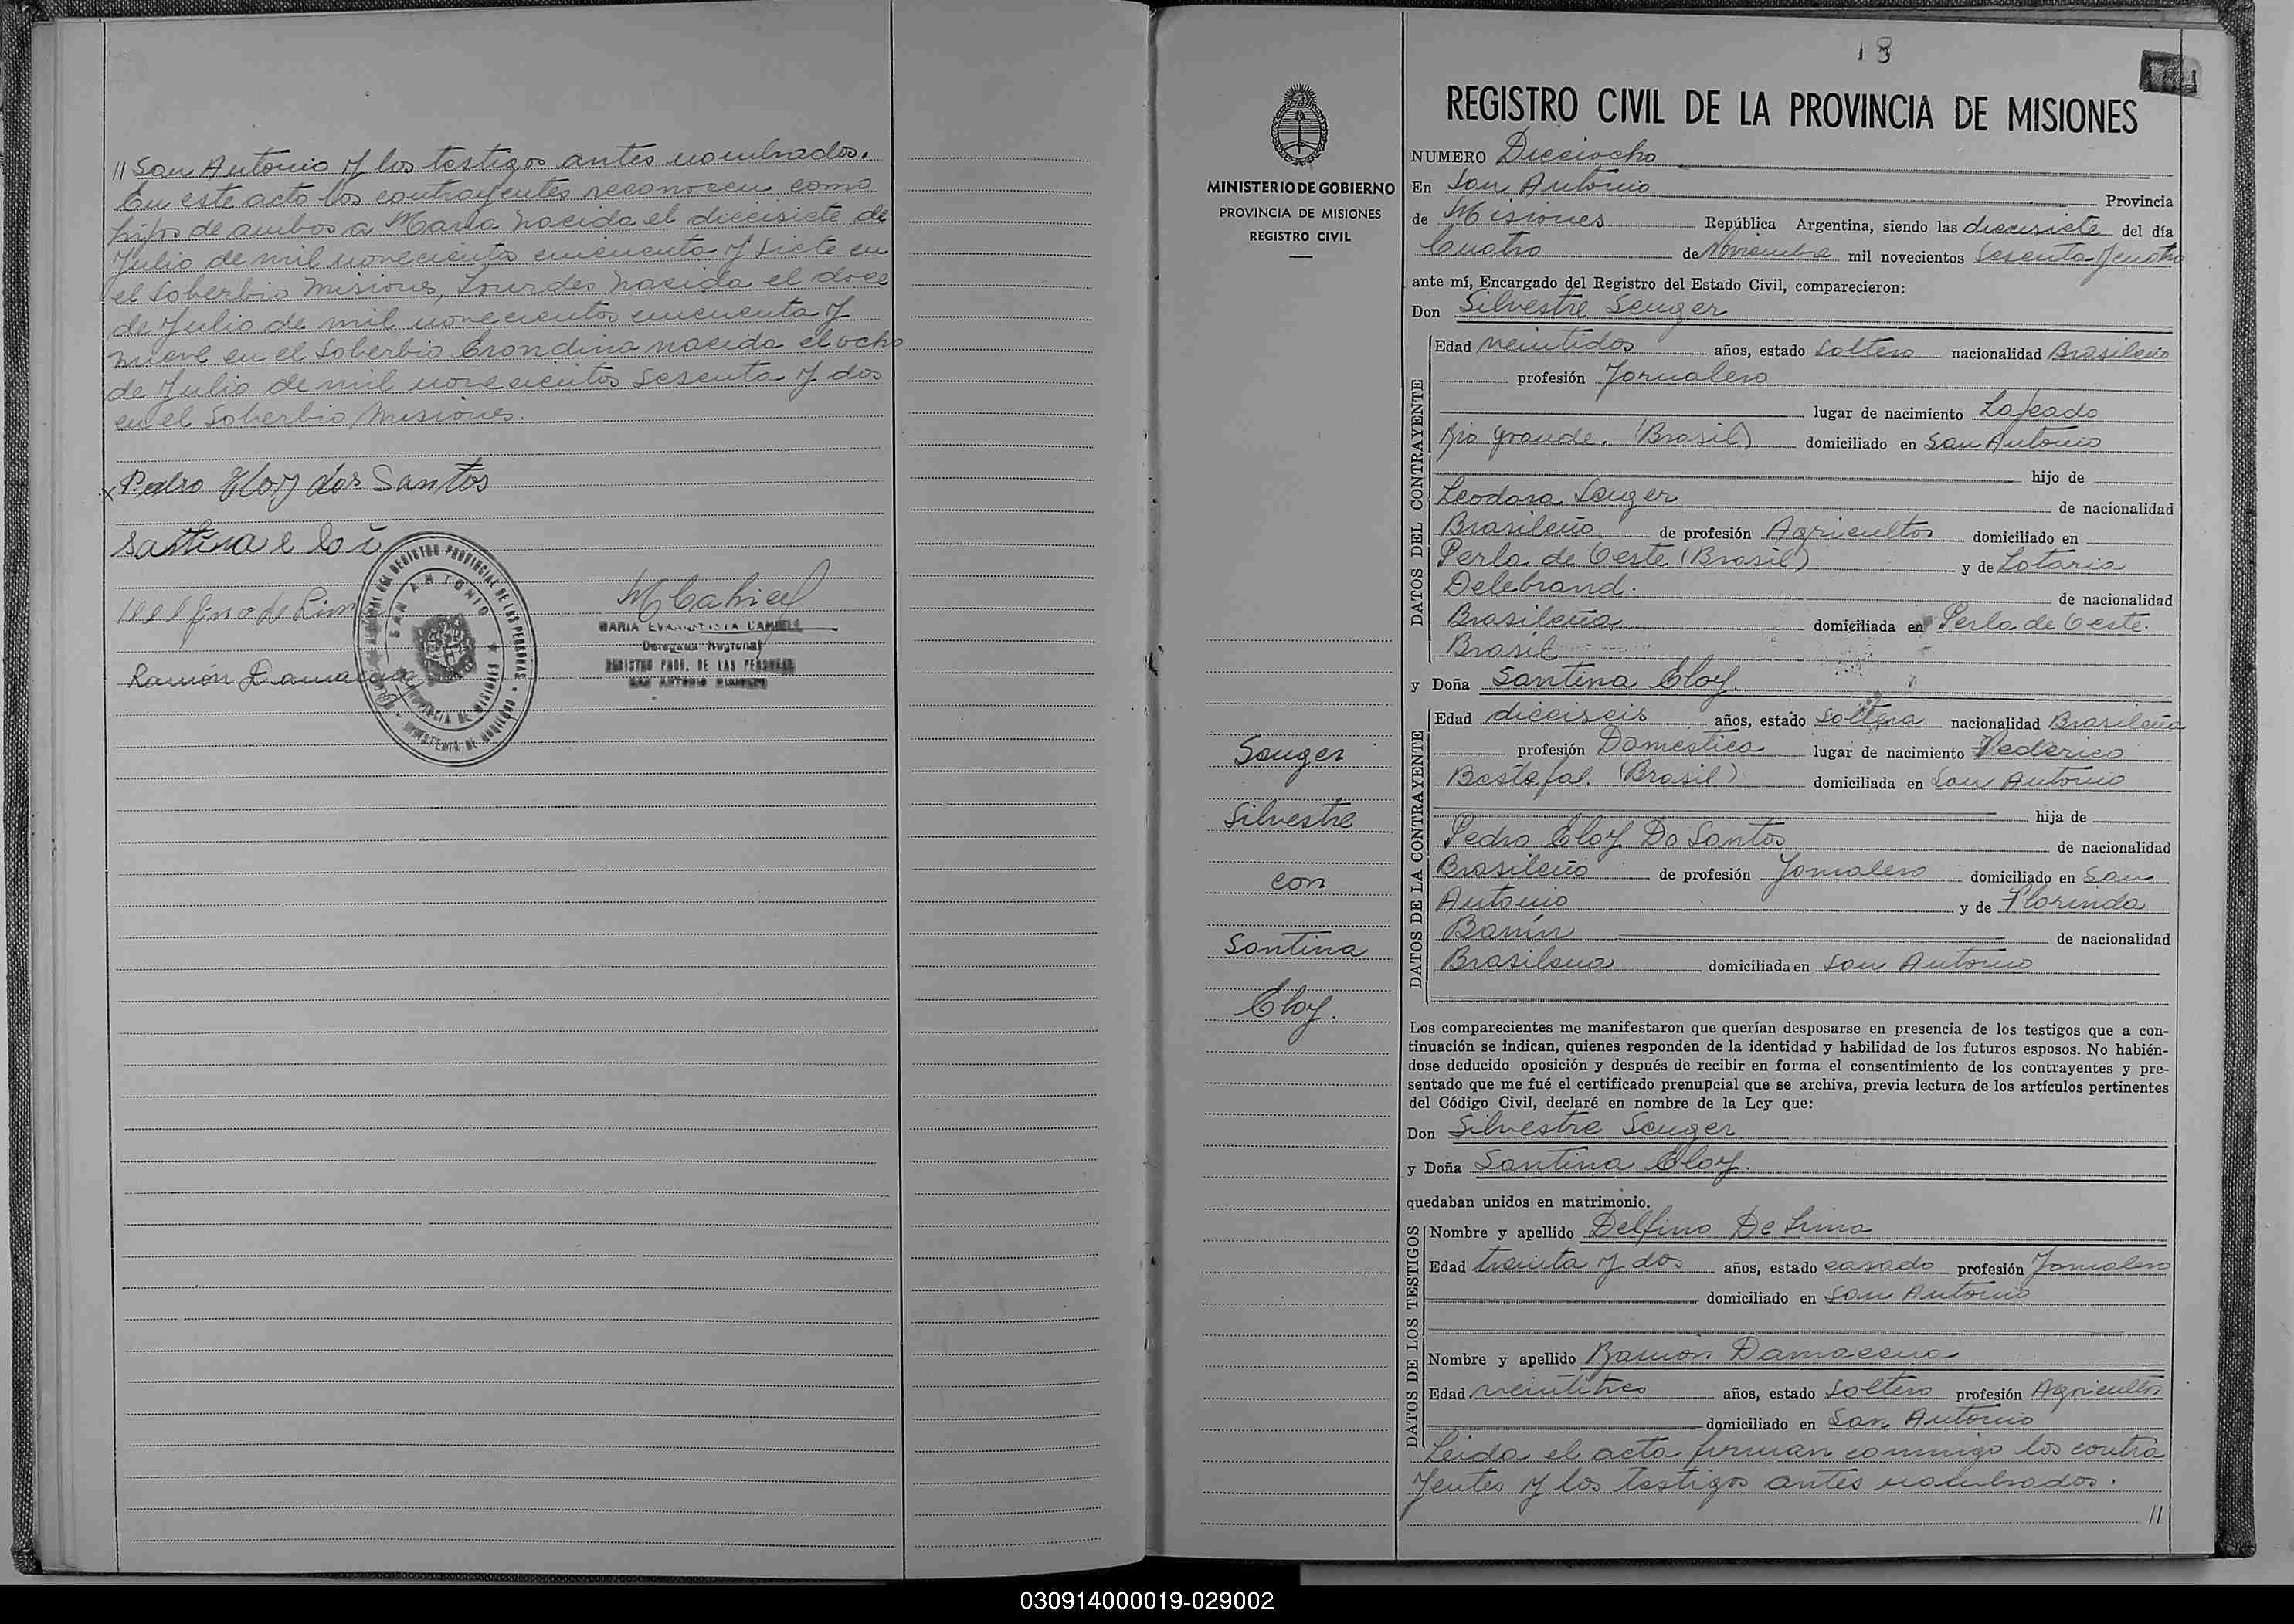 // San Antonio y los testigos antes nombrados.
En este acto los contrayentes reconocen como
hijos de ambos a Maria nacida el diecisiete de
Julio de mil novecientos cincuenta y siete en
el Soberbio Misiones, Lourdes nacida el doce
de Julio de mil novecientos cincuenta y
nueve en el Soberbio Erondina nacida el ocho
de Julio de mil novecientos sesenta y dos
en el Soberbio Misiones.
x Pedro Eloy dos Santos
Santina eloi
Ramón Damacena
SAN ANTONIO
PROVINCIA DE MISIONES
REGISTRO PROVINCIAL DE LAS PERSONAS
MCabriel
MARIA EVANGELISTA
Delegada Regional
REGISTRO PROV. DE LAS PERSONAS
SAN ANTONIO MISIONES
MINISTERIO DE GOBIERNO
PROVINCIA DE MISIONES
REGISTRO CIVIL
Senger
Silvestre
con
Santina
Eloy.
18
REGISTRO CIVIL DE LA PROVINCIA DE MISIONES
NUMERO Dieciocho
En San Antonio Provincia
de Misiones República Argentina, siendo las diecisiete del día
Cuatro de Noviembre mil novecientos Sesenta y cuatro
ante mí, Encargado del Registro del Estado Civil, comparecieron:
Don Silvestre Senger
DATOS DEL CONTRAYENTE
Edad veintidos años, estado Soltero nacionalidad Brasileño
profesión Jornalero
lugar de nacimiento Lajeado
Rio Grande. (Brasil) domiciliado en San Antonio
hijo de
Leodoro Senger de nacionalidad
Brasileño de profesión Agricultor domiciliado en
Perla de Oeste (Brasil) y de Lotaria
Delebrand. de nacionalidad
Brasileña domiciliada en Perla de Oeste.
Brasil
y Doña Santina Eloy.
DATOS DE LA CONTRAYENTE
Edad dieciseis años, estado Soltera nacionalidad Brasileña
profesión Domestica lugar de nacimiento Federico
Bestafal. (Brasil) domiciliada en San Antonio
hija de
Pedro Eloy Do Santos de nacionalidad
Brasileño de profesión Jornalero domiciliado en San
Antonio y de Florinda
Banin de nacionalidad
Brasilena domiciliada en San Antonio
Los comparecientes me manifestaron que querían desposarse en presencia de los testigos que a con-
tinuación se indican, quienes responden de la identidad y habilidad de los futuros esposos. No habién-
dose deducido oposición y después de recibir en forma el consentimiento de los contrayentes y pre-
sentado que me fué el certificado prenupcial que se archiva, previa lectura de los artículos pertinentes
del Código Civil, declaré en nombre de la Ley que:
Don Silvestre Senger
y Doña Santina Eloy.
quedaban unidos en matrimonio.
DATOS DE LOS TESTIGOS
Nombre y apellido Delfino De Lima
Edad treinta y dos años, estado casado profesión Jornalero
domiciliado en San Antonio
Nombre y apellido Ramón Damacena
Edad veintitres años, estado Soltero profesión Agricultor
domiciliado en San Antonio
Leida el acta firman conmigo los contra
yentes y los testigos antes nombrados.
//
030914000019-029002